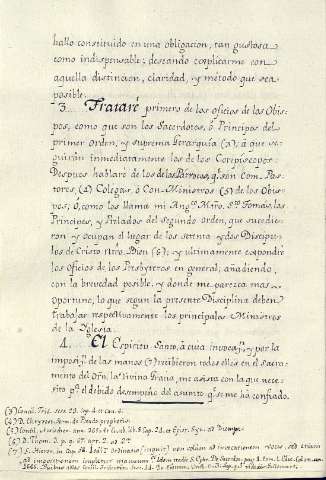 hallo constituido en una obligacion, tan gustosa
como indispensable; deseando explicarme con
aquella distincion, claridad, y método que sea
posible.
3... Trataré primero de los oficios de los Obis-
pos, como que son los Sacerdotes, ó Principes del
primer Orden, y suprema Gerarquia (3), á que se-
guirán inmediatamente los de los Corepiscopos:
Despues hablaré de los de los Parrocos, qe. son Con-Pas-
tores, (4) Colegas, ó Con-Ministros (5) de los Obis-
pos; ó, como los llama mi Angco. Mtro. Sto. Tomás, los
Principes, y Prelados del Segundo Orden, que sucedie-
ron y ocupan el lugar de los setenta y dos Discipu-
los de Cristo Ntro. Bien (6); y ultimamente expondré
los Oficios de los Presbyteros en general; añadiendo,
con la brevedad posible, y donde me parezca mas
oportuno, lo que segun la presente Disciplina deben
trabajar respectivamente los principales Ministros
de la Iglesia.
4... El Espiritu Santo, á cuia invocacn. y por la
imposicn. de las manos (7) recibieron todos ellos en el Sacra-
mento del Orn. la Divina Gracia, me asista con la que nece-
sito pa. el debido desempeño del asunto qe. se me há confiado.
(3) Concil. Trid. sess. 23. Cap. 4. et Can. 6.
(4) D. Chrysost. Hom. de
(6) D. Thom. 2. 2. q. 17. art. 2. ad 2.
(7) S. Hieron. in Cap. 58. Isai. Ordinatio (inquit) non solum ad